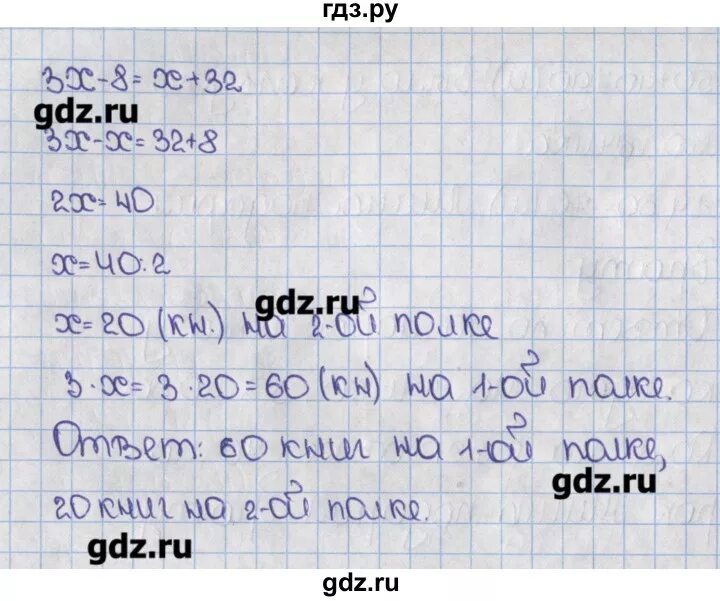 гдз.ру
3x-8=x+32
gdz.ru
3x-x=32+8
2x=40
x=40:2
gdz.ru
x=20 (кн.) на 2-ой полке
3·x=3·20=60 (кн) на 1-ой полке.
Ответ: 60 книг на 1-ой полке,
gdz.ru
20 книг на 2-ой полке.
gdz.ru
gdz.ru